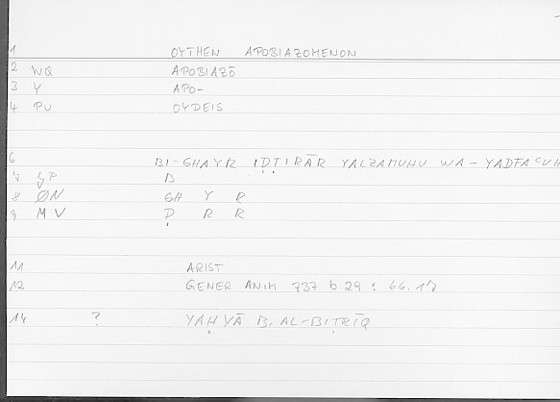 1 OYTHEN APOBIAZOMENON
2 WQ APOBIAZŌ
3 Y APO-
4 PU OYDEIS
6 BI-GHAYR IḌṬIRĀR YALZAMUHU WA-YADFAʿUH
7 SP B
8 ØN GH Y R
9 MV Ḍ R R
11 ARIST
12 GENER ANIM 737 b 29 : 66.17
14 ? YAḤYĀ B. AL-BIṬRĪQ